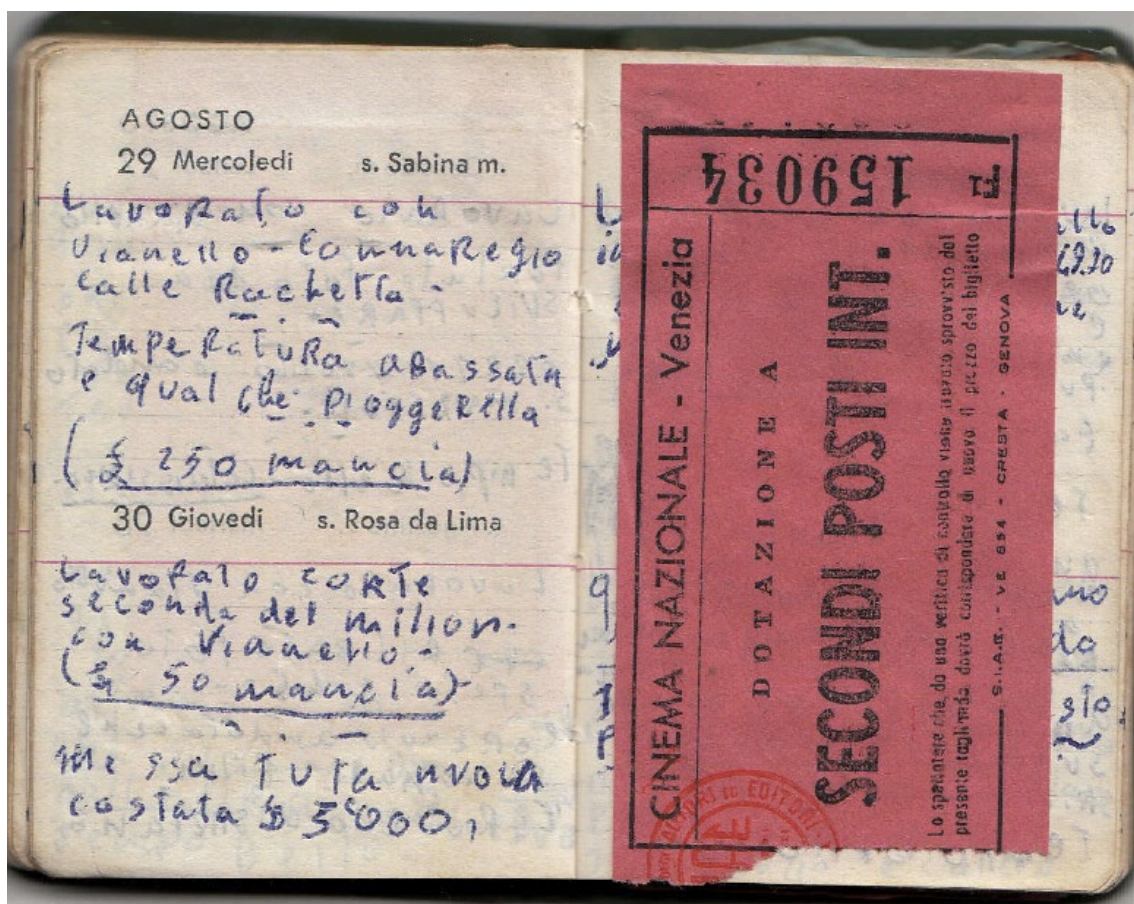 AGOSTO
29 Mercoledi s. Sabina m.
Lavorato con
Vianello - Cannaregio
Calle Rachetta -
Temperatura abassata
e qualche pioggerella
(£ 250 mancia)
30 Giovedi s. Rosa da Lima
Lavorato corte
seconda del milion -
con Vianello -
(£ 50 mancia)
Messa tuta nuova
costata £ 5000,
159034
CINEMA NAZIONALE - Venezia
DOTAZIONE A
SECONDI POSTI INT.
Lo spettatore che, da una verifica di controllo viene trovato sprovvisto del
presente tagliando, dovrà corrispondere di nuovo il prezzo del biglietto
S.I.A.E. - VE 854 - CRESTA - GENOVA